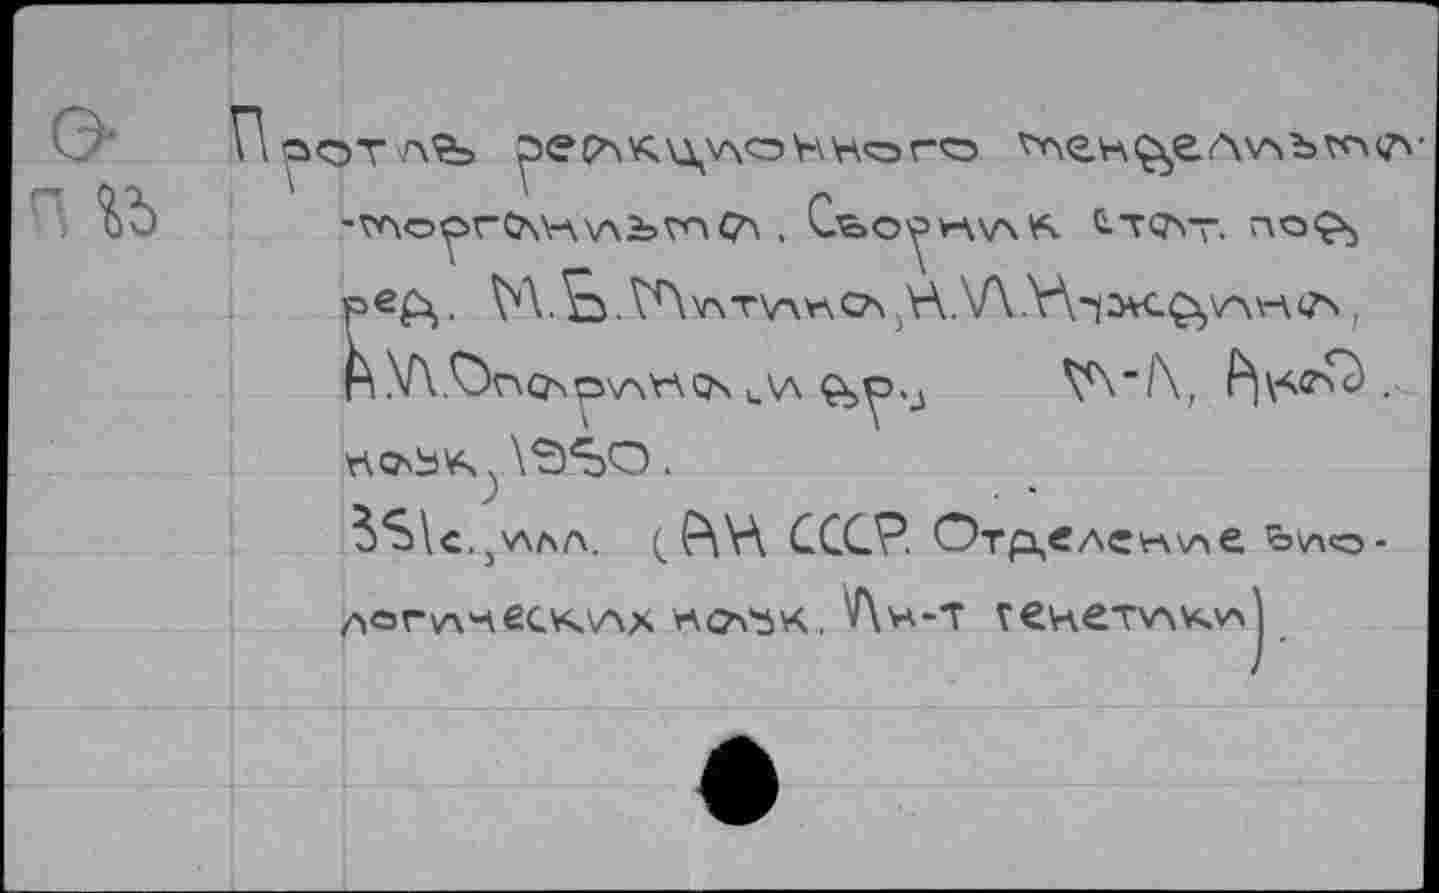 Э
П 83
Против реакционного менделизма-
-морганизма. Сборник стат. под
ред. М.Б.Митина, Н.И.Нуждина,
А.И.Опарина, и др., М-Л, Акад.
наук, 1950.
351с., илл. (АН СССР. Отделение био-
логических наук. Ин-т генетики)